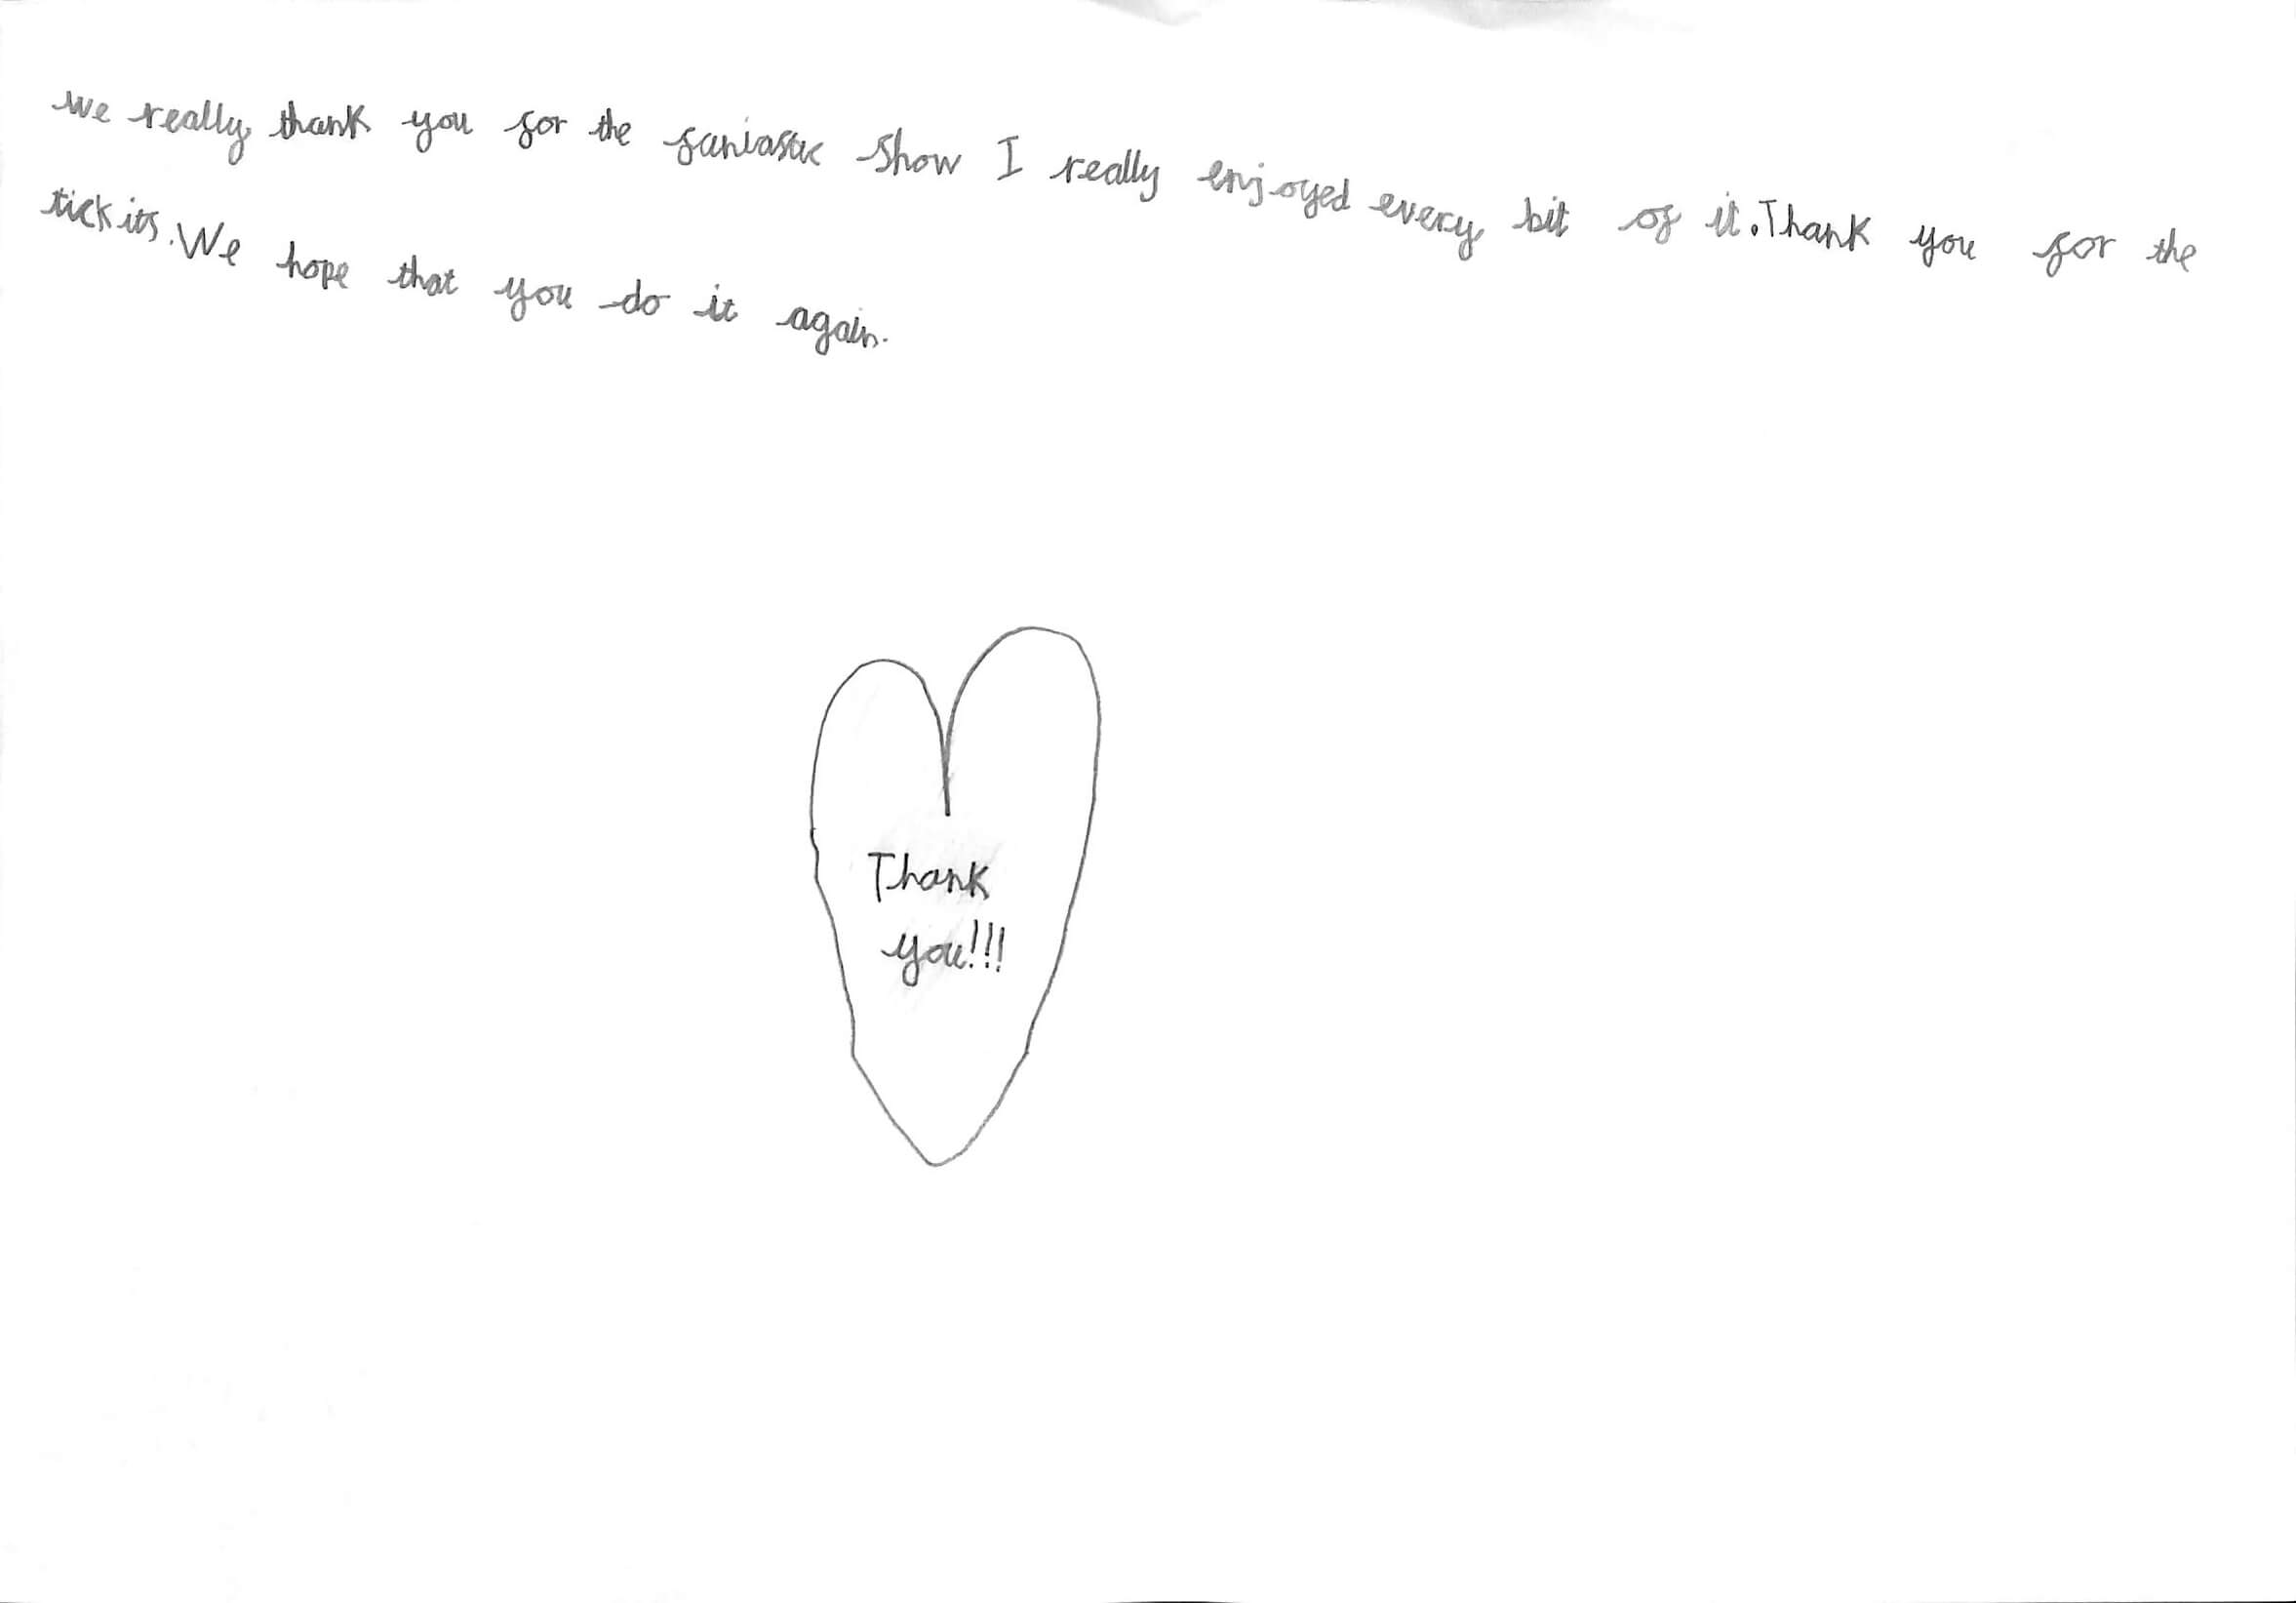 We really thank you for the fantastic show I really enjoyed every bit of it. Thank you for the
tickits. We hope that you do it again.
Thank
you!!!